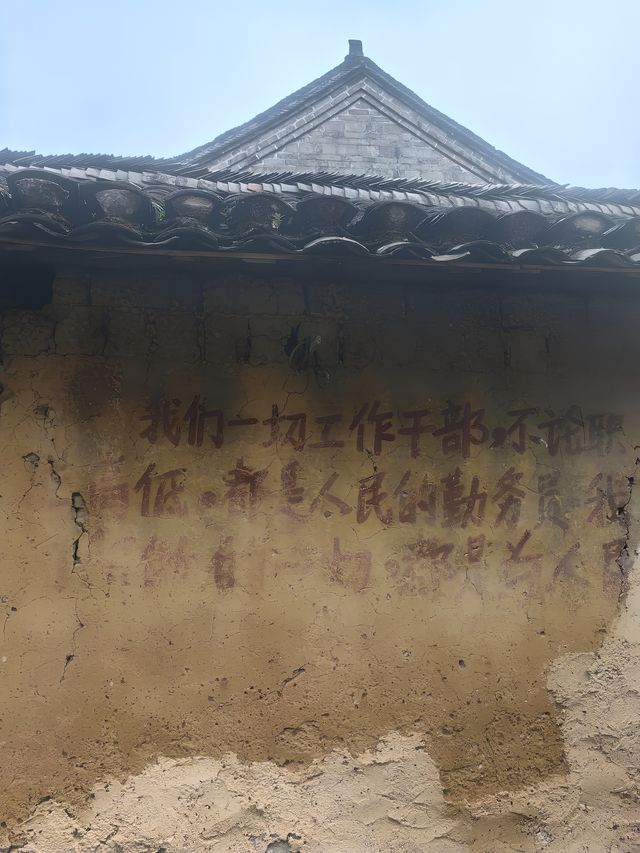 我们一切工作干部，不论职
高低，都是人民的勤务员我
们所做的一切，都是为人民